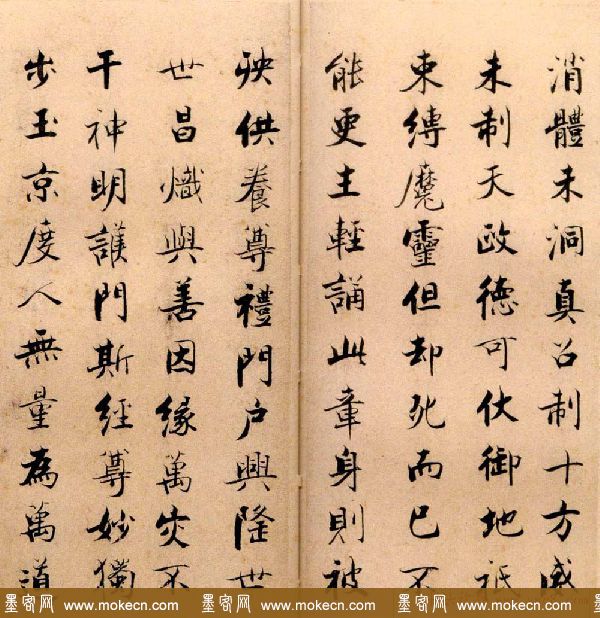 消體未洞真召制十方威
未制天政德可伏御地祇
束縛魔靈但却死而已不
能更生輕誦此章身則被
殃供養尊禮門户興隆世
世昌熾與善因緣萬灾不
干神明護門斯經尊妙獨
步玉京度人無量為萬道
墨客网 www.mokecn.com 墨客网 www.mokecn.com 墨客网 www.mokecn.com